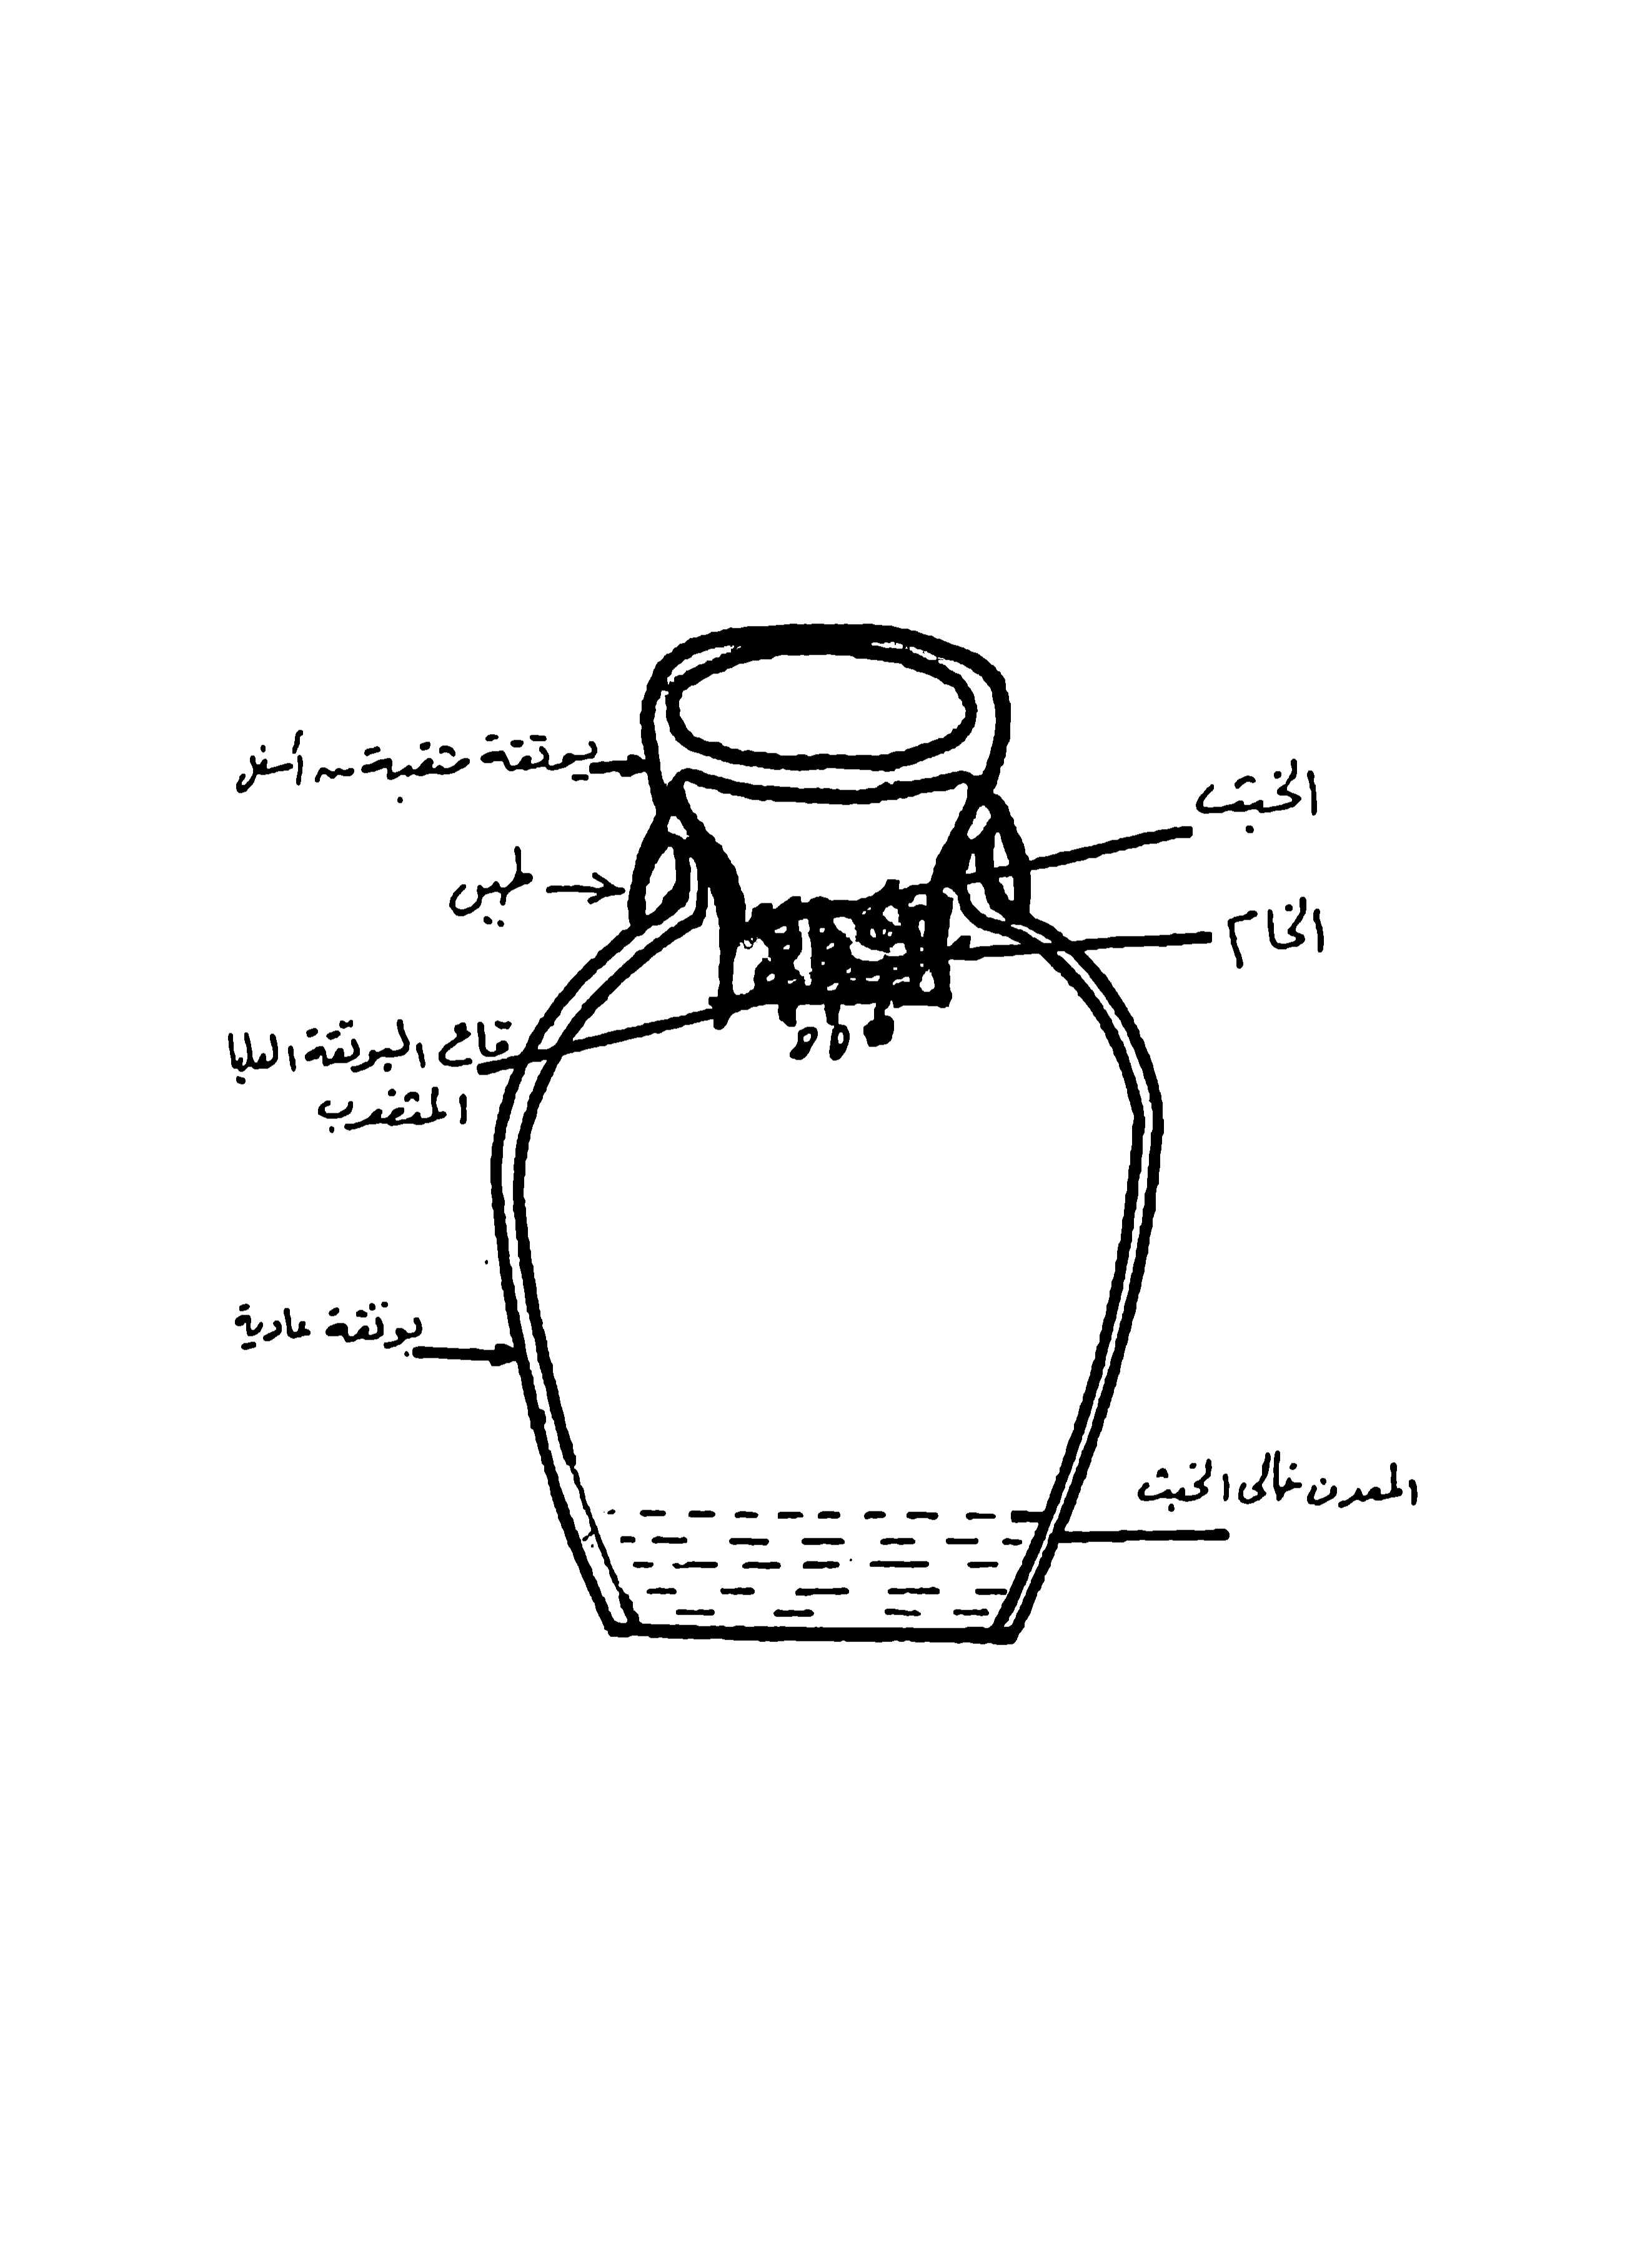 بوتقة مثقبة من أسفل
الخبث
طين
الخام
قاع البوتقة العليا
المثقب
بوتقة عادية
المعدن خالى الخبث